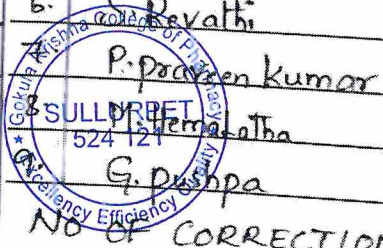 6. S. Revathi
7. P. praveen kumar
8. M. Hemalatha
9. G. pushpa
NO OF CORRECTION
Gokula Krishna College of Pharmacy
SULLURPET
524 121
Excellency Efficiency Quality